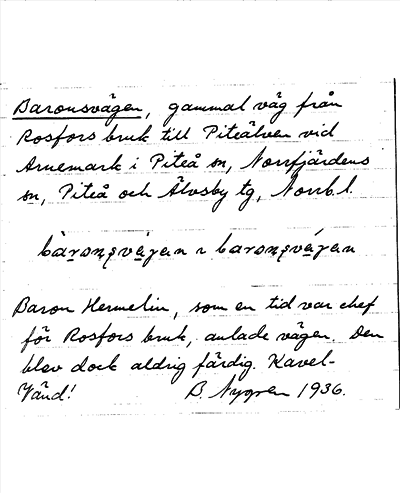 Baronsvägen, gammal väg från
Rosfors bruk till Piteälven vid
Arnemark i Piteå sn, Norrfjärdens
sn, Piteå och Älvsby tg, Norrb.l.
Baron Hermelin, som en tid var chef
för Rosfors bruk, anlade vägen. Den
blev dock aldrig färdig. Kavel-
Vänd! B. Nygren 1936.